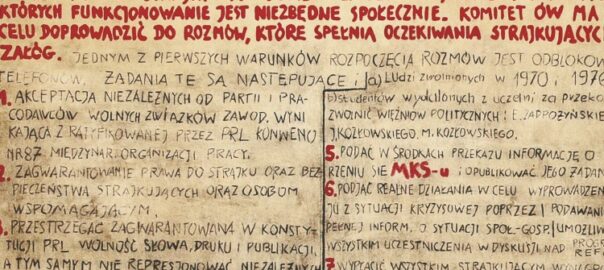 KTÓRYCH FUNKCJONOWANIE JEST NIEZBĘDNE SPOŁECZNIE. KOMITET ÓW MA
CELU DOPROWADZIĆ DO ROZMÓW, KTÓRE SPEŁNIĄ OCZEKIWANIA STRAJKUJĄCYCH
ZAŁÓG. JEDNYM Z PIERWSZYCH WARUNKÓW ROZPOCZĘCIA ROZMÓW JEST ODBLOKOW
TELEFONÓW, ZADANIA TE SĄ NASTĘPUJĄCE: a) Ludzi zwolnionych w 1970 i 1976
1. AKCEPTACJA NIEZALEŻNYCH OD PARTII I PRA-
CODAWCÓW WOLNYCH ZWIĄZKÓW ZAWOD. WYNI
KAJĄCA Z RATYFIKOWANEJ PRZEZ PRL KONWENCJI
NR 87 MIĘDZYNAR. ORGANIZACJI PRACY.
2. ZAGWARANTOWANIE PRAWA DO STRAJKU ORAZ BEZ-
PIECZEŃSTWA STRAJKUJĄCYCH ORAZ OSOBOM
WSPOMAGAJĄCYM.
3. PRZESTRZEGAĆ ZAGWARANTOWANĄ W KONSTY-
TUCJI PRL WOLNOŚĆ SŁOWA, DRUKU I PUBLIKACJI,
A TYM SAMYM NIE REPRESJONOWAĆ NIEZALEŻNYCH
b) studentów wydalonych z uczelni za przeko
ZWOLNIĆ WIĘŹNIÓW POLITYCZNYCH: E. ZADROŻYŃSKIE
J. KOZŁOWSKIEGO, M. KOZŁOWSKIEGO.
5. PODAĆ W ŚRODKACH PRZEKAZU INFORMACJĘ O
RZENIU SIĘ MKS-u I OPUBLIKOWAĆ JEGO ŻĄDAN
6. PODJĄĆ REALNE DZIAŁANIA W CELU WYPROWADZEN
JU Z SYTUACJI KRYZYSOWEJ POPRZEZ: PODAWANI
PEŁNEJ INFORM. O SYTUACJI SPOŁ-GOSP. UMOŻLIW
WSZYSTKIM UCZESTNICZENIA W DYSKUSJI NAD PROGR
REF
7. WYPŁACIĆ WSZYSTKIM STRAJKUJĄCYM